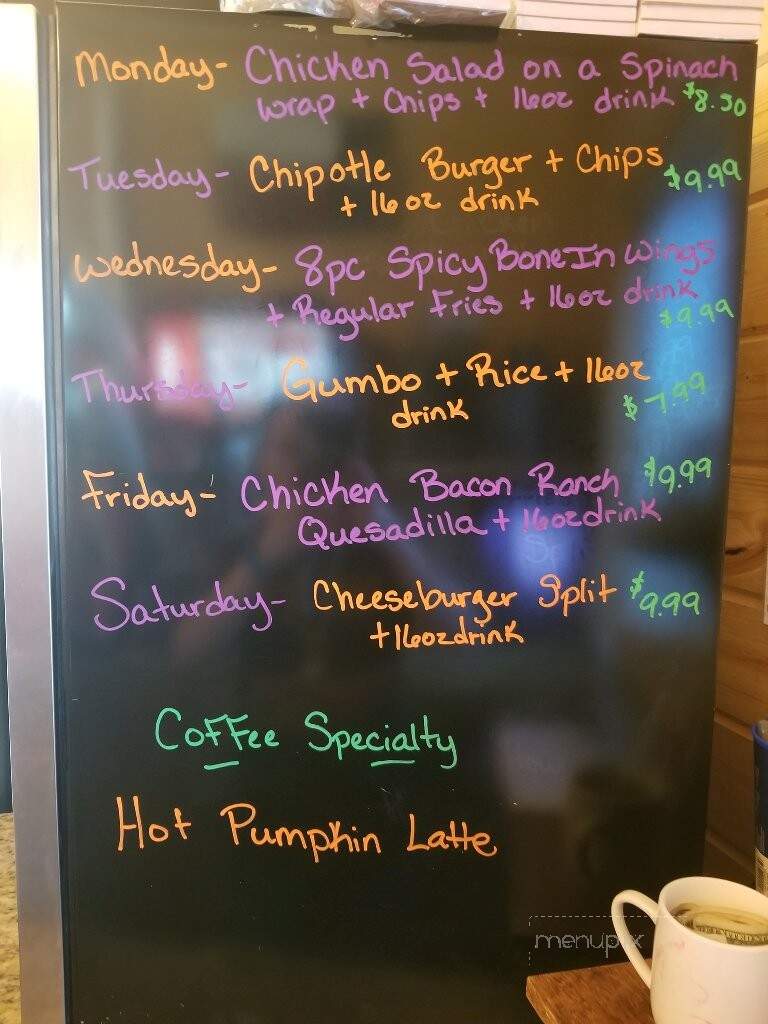 Monday- Chicken Salad on a Spinach
wrap + Chips + 16oz drink $8.50
Tuesday- Chipotle Burger + Chips $9.99
+ 16oz drink
Wednesday- 8pc Spicy Bone In Wings
+ Regular Fries + 16oz drink
$9.99
Thursday- Gumbo + Rice + 16oz
drink $7.99
Friday- Chicken Bacon Ranch $9.99
Quesadilla + 16oz drink
Saturday- Cheeseburger Split $9.99
+ 16oz drink
Coffee Specialty
Hot Pumpkin Latte
menupix